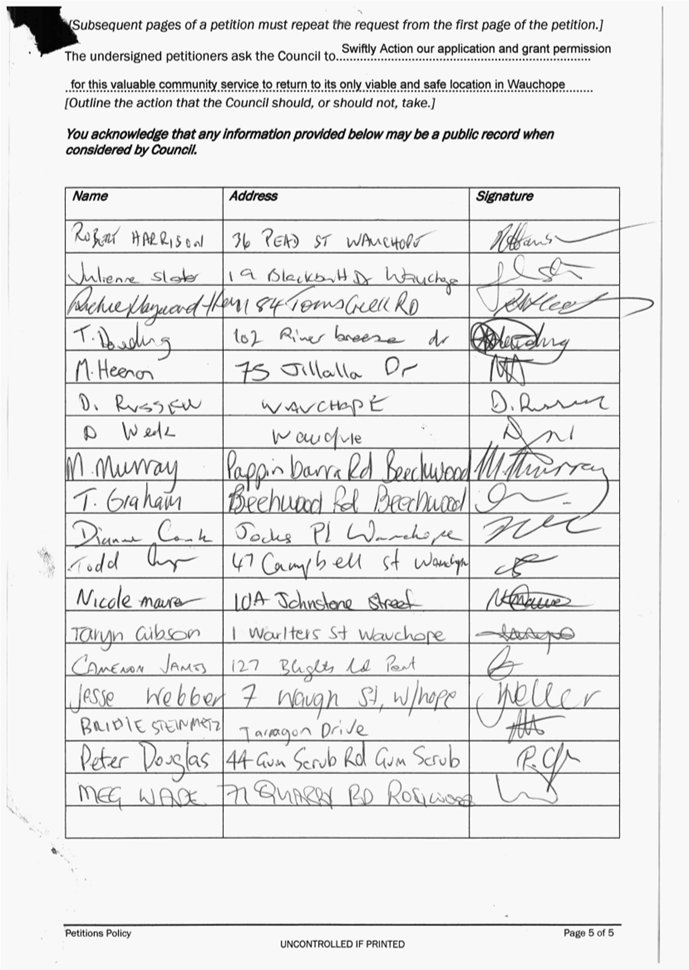 [Subsequent pages of a petition must repeat the request from the first page of the petition.]
The undersigned petitioners ask the Council to.... Swiftly Action our application and grant permission
for this valuable community service to return to its only viable and safe location in Wauchope
[Outline the action that the Council should, or should not, take.]
You acknowledge that any information provided below may be a public record when
considered by Council.
Name Address Signature
ROBERT HARRISON 36 READ ST WAUCHOPE
Julienne Slater 19 Blackbutt Dr Wauchope
184 Toms Creek RD
T. Dowling 102 River breeze dr
M. Heenan 75 Jillalla Dr
D. RUSSELL WAUCHOPE D. Russell
D
M. Murray Pappinbarra Rd Beechwood M Murray
T. Graham Beechwood Rd Beechwood
Dianne Jocks Pl Wauchope
Todd 47 Campbell st Wauchope
Nicole maurer 10A Johnstone Street
Taryn Gibson 1 Warlters St Wauchope
CAMERON JAMES 127 Rd
Jesse Webber 7 Waugh St, W/hope
BRIDIE STEINMETZ Tarragon Drive
Peter Douglas 44 Gum Scrub Rd Gum Scrub
MEG WADE 71 QUARRY RD
Petitions Policy Page 5 of 5
UNCONTROLLED IF PRINTED